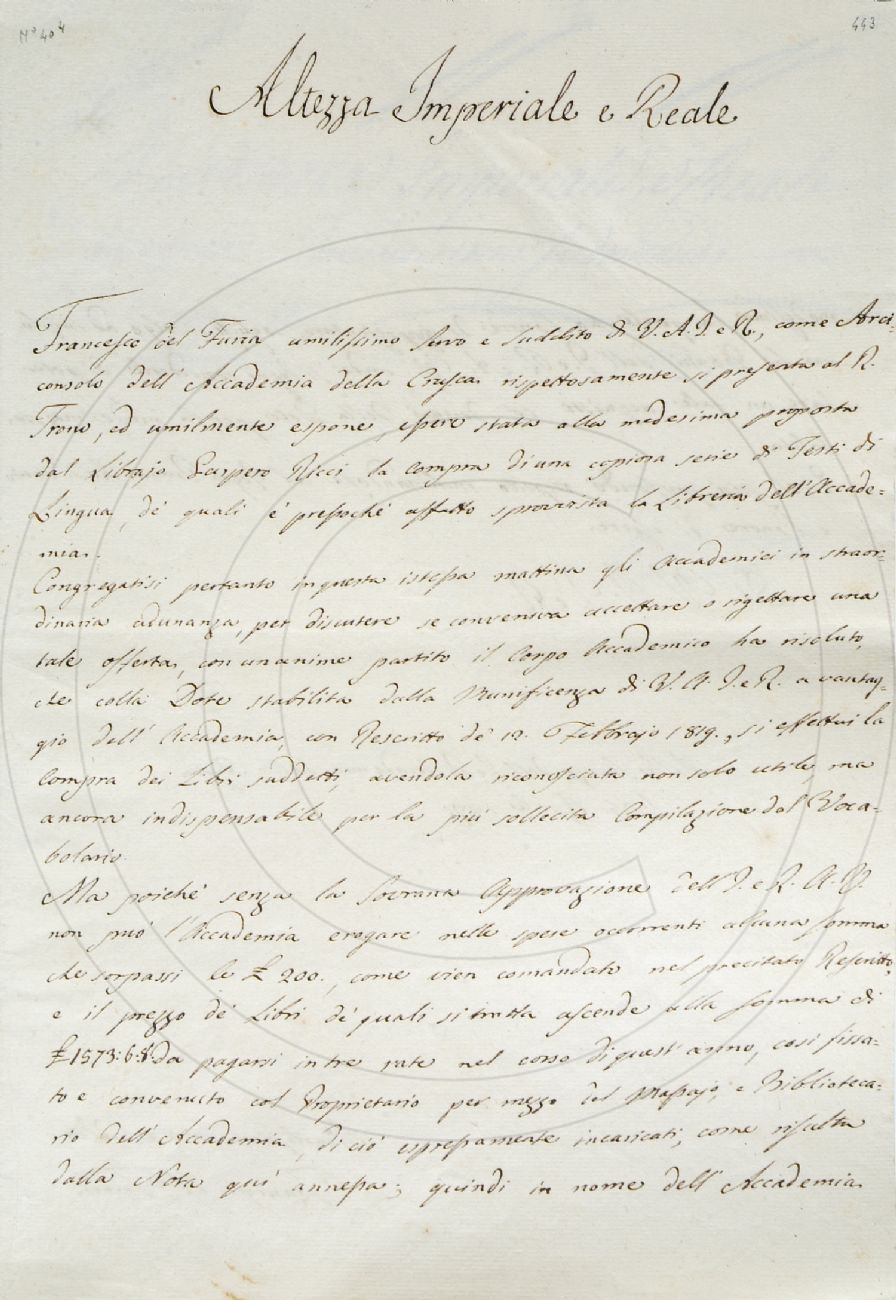 N.° 40⁴
443
Altezza Imperiale e Reale
Francesco del Furia umilissimo Servo e Suddito di V. A. I. e R., come Arci=
consolo dell' Accademia della Crusca rispettosamente si presenta al R.
Trono, ed umilmente espone, essere stata alla medesima proposta
dal Librajo Gaspero Ricci la compra di una copiosa serie di Testi di
Lingua, de' quali è pressochè affatto sprovvista la Libreria dell' Accade=
mia.
Congregatisi pertanto in questa istessa mattina gli Accademici in straor=
dinaria adunanza, per discutere se conveniva accettare o rigettare una
tale offerta, con unanime partito il Corpo Accademico ha risoluto,
che colla Dote stabilita dalla Munificenza di V. A. I. e R. a vantag=
gio dell' Accademia, con Rescritto de' 12. Febbrajo 1819., si effettui la
Compra dei Libri suddetti, avendola riconosciuta non solo utile, ma
ancora indispensabile per la più sollecita Compilazione del Voca=
bolario.
Ma poichè senza la Sovrana Approvazione dell' I. e R. A. V.
non può l' Accademia erogare nelle spese occorrenti alcuna somma
che sorpassi le £ 200., come vien comandato nel precitato Rescritto,
e il prezzo de' Libri de' quali si tratta ascende alla somma di
£ 1573:6:8. da pagarsi in tre rate nel corso di quest' anno, così fissa=
to e convenuto col Proprietario per mezzo del Massajo, e Biblioteca=
rio dell' Accademia, di ciò espressamente incaricati, come risulta
dalla Nota quì annessa; quindi in nome dell' Accademia